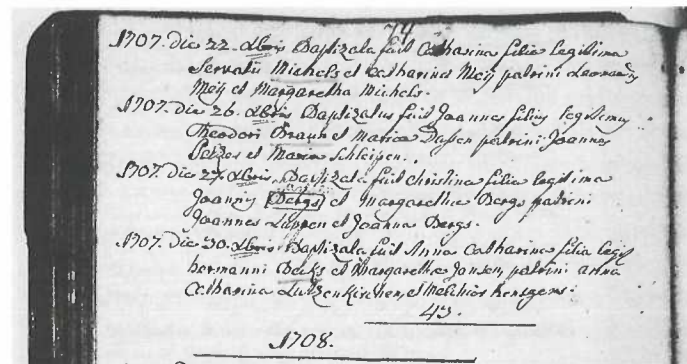 74
1707. die 22. Xbris Baptizata fuit Catharina filia legitima
Servatii Michels et Catharina Meij patrini Leonardus
Meij et Margaretha Michels.
1707. die 26. Xbris Baptizatus fuit Joannes filius legitimus
Theodori Braun et Maria Dassen patrini Joannes
et Maria Schleipen.
1707. die 27. Xbris Baptizata fuit Christina filia legitima
Joannis Bergs et Margaretha Bergs patrini
Joannes Luppen et Joanna Bergs.
1707. die 30. Xbris Baptizata fuit Anna Catharina filia legit
hermanni Becks et Margaretha Jansen, patrini anna
Catharina Lutzenkirchen, et Melchior Rentgens.
43.
1708.